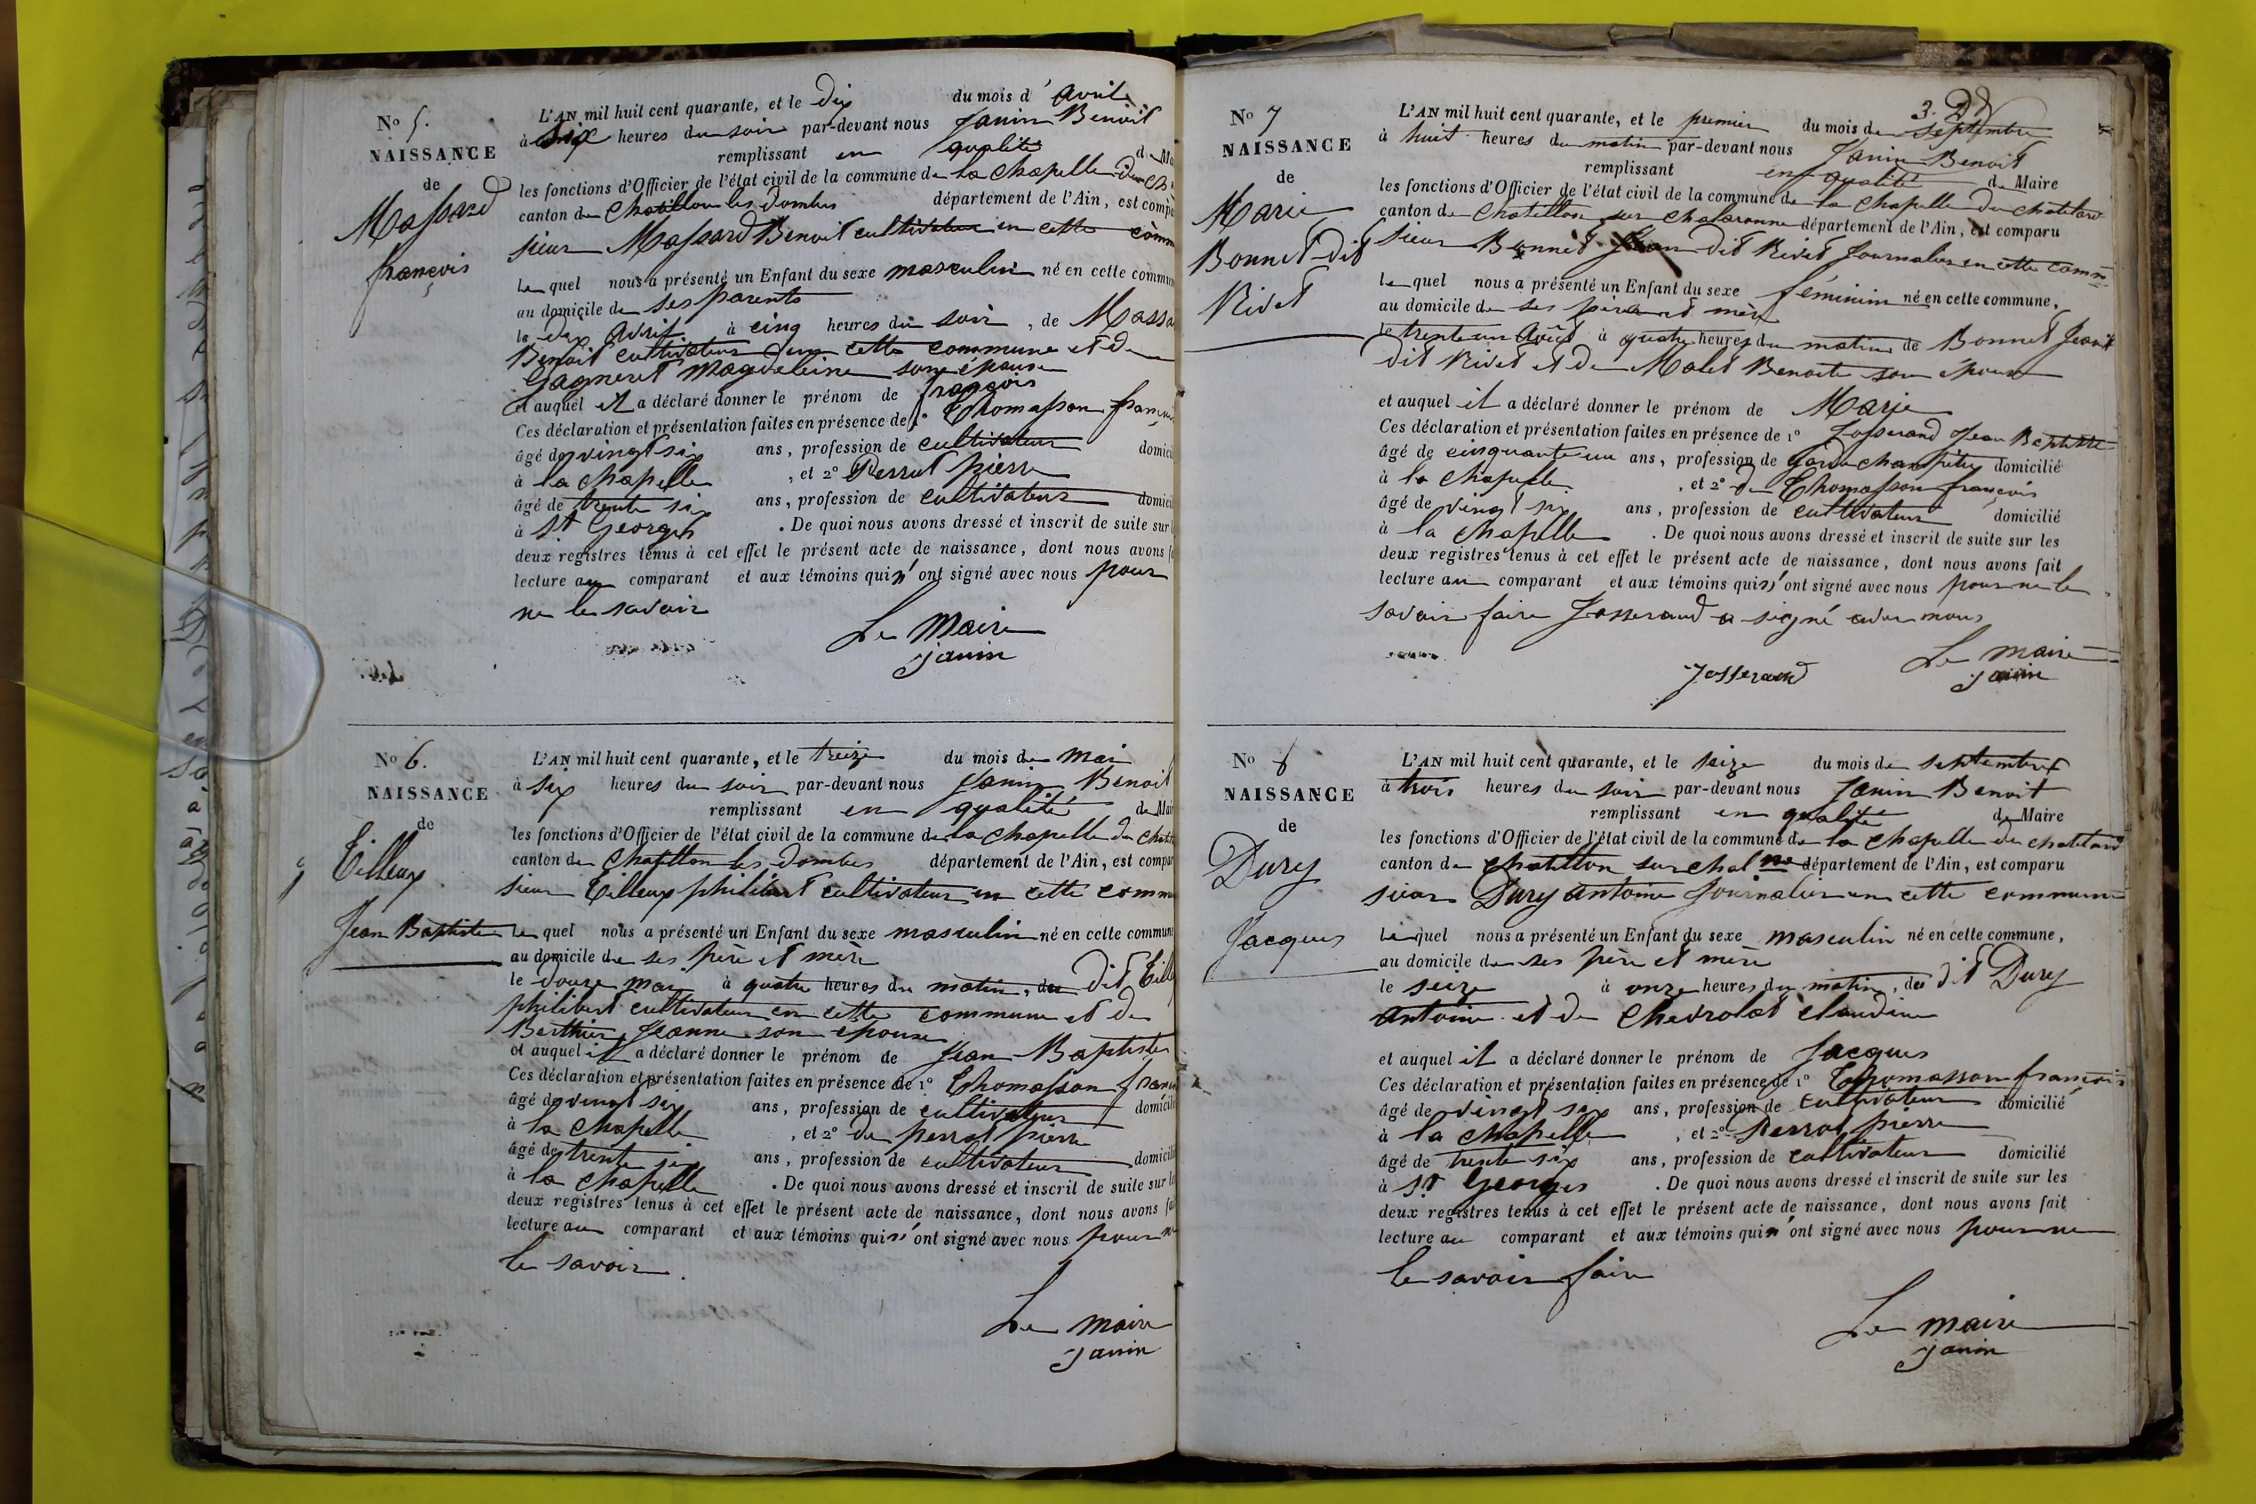 No 5.
NAISSANCE
de
Massard
françois
L'AN mil huit cent quarante, et le Dix du mois d' avril
à six heures du soir par-devant nous Janin Benoit
remplissant en qualité de Ma
les fonctions d'Officier de l'état civil de la commune de la chapelle du ch
canton de Chatillon les dombes département de l'Ain, est compa
sieur Massard Benoit cultivateur en cette comm
Le quel nous a présenté un Enfant du sexe masculin né en cette commun
au domicile de ses parents
le dix avril à cinq heures du soir, de Massa
Benoit cultivateur en cette commune et de
Gagneret Magdeleine son épouse
et auquel il a déclaré donner le prénom de françois
Ces déclaration et présentation faites en présence de 1° Thomasson franç
âgé de vingt six ans, profession de cultivateur domici
à la chapelle, et 2° Perrat pierre
âgé de trente six ans, profession de cultivateur domici
à St Georges. De quoi nous avons dressé et inscrit de suite sur
deux registres tenus à cet effet le présent acte de naissance, dont nous avons f
lecture au comparant et aux témoins qui n'ont signé avec nous pour
ne le savoir
Le Maire
Janin
No 6.
NAISSANCE
de
Tilleux
Jean Baptiste
L'AN mil huit cent quarante, et le treize du mois de mai
à six heures du soir par-devant nous Janin Benoit
remplissant en qualité de Mai
les fonctions d'Officier de l'état civil de la commune de la chapelle du chat
canton de Chatillon les dombes département de l'Ain, est compar
sieur Tilleux philibert cultivateur en cette comm
Le quel nous a présenté un Enfant du sexe masculin né en cette commune
au domicile de ses père et mère
le douze mai à quatre heures du matin, du dit Till
philibert cultivateur en cette commune et de
Berthier Jeanne son épouse
et auquel il a déclaré donner le prénom de Jean Baptiste
Ces déclaration et présentation faites en présence de 1° Thomasson fran
âgé de vingt six ans, profession de cultivateur domicili
à la chapelle, et 2° de perrat pierre
âgé de trente six ans, profession de cultivateur domicili
à la chapelle. De quoi nous avons dressé et inscrit de suite sur le
deux registres tenus à cet effet le présent acte de naissance, dont nous avons fai
lecture au comparant et aux témoins qui n'ont signé avec nous pour ne
le savoir.
Le maire
Janin
No 7
NAISSANCE
de
Marie
Bonnet dit
Rivet
L'AN mil huit cent quarante, et le premier du mois de septembre
à huit heures du matin par-devant nous Janin Benoit
remplissant en qualité de Maire
les fonctions d'Officier de l'état civil de la commune de la chapelle du chatelard
canton de Chatillon sur chalaronne département de l'Ain, est comparu
sieur Bonnet Jean dit Rivet Journalier en cette comm
Le quel nous a présenté un Enfant du sexe féminin né en cette commune,
au domicile de ses père et mère
le trente un août à quatre heures du matin de Bonnet Jean
dit Rivet et de Malet Benoite son épouse
et auquel il a déclaré donner le prénom de Marie
Ces déclaration et présentation faites en présence de 1° Josserand Jean Baptiste
âgé de cinquante un ans, profession de garde champêtre domicilié
à la chapelle, et 2° de Thomasson françois
âgé de vingt six ans, profession de cultivateur domicilié
à la chapelle. De quoi nous avons dressé et inscrit de suite sur les
deux registres tenus à cet effet le présent acte de naissance, dont nous avons fait
lecture au comparant et aux témoins qui n'ont signé avec nous pour ne le
savoir faire Josserand a signé avec nous
Le maire
Josserand Janin
No 8
NAISSANCE
de
Dury
Jacques
L'AN mil huit cent quarante, et le seize du mois de septembre
à trois heures du soir par-devant nous Janin Benoit
remplissant en qualité de Maire
les fonctions d'Officier de l'état civil de la commune de la chapelle du chatelard
canton de chatillon sur chalne département de l'Ain, est comparu
sieur Dury antoine Journalier en cette commune
Le quel nous a présenté un Enfant du sexe masculin né en cette commune,
au domicile de ses père et mère
le seize à onze heures du matin, du dit Dury
antoine et de Chevrolat claudine
et auquel il a déclaré donner le prénom de Jacques
Ces déclaration et présentation faites en présence de 1° Thomasson françois
âgé de vingt six ans, profession de cultivateur domicilié
à la chapelle, et 2° Perrat pierre
âgé de trente six ans, profession de cultivateur domicilié
à St Georges. De quoi nous avons dressé et inscrit de suite sur les
deux registres tenus à cet effet le présent acte de naissance, dont nous avons fait
lecture au comparant et aux témoins qui n'ont signé avec nous pour ne
le savoir faire
Le maire
Janin